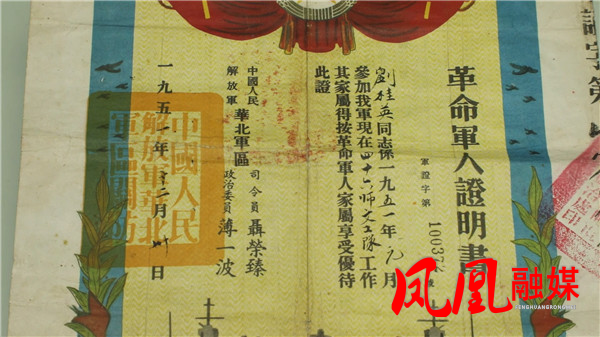 革命軍人證明書
軍證字第100372號
劉桂英同志係一九五一年元月
參加我軍現在四十六師文工隊工作
其家屬得按革命軍人家屬享受優待
此證
中國人民
解放軍
華北軍區
司令員 聶榮臻
政治委員 薄一波
一九五一年 月 日
中國人民
解放軍華北
軍區關防
證字第
凤凰融媒
FENGHUANGRONGMEI